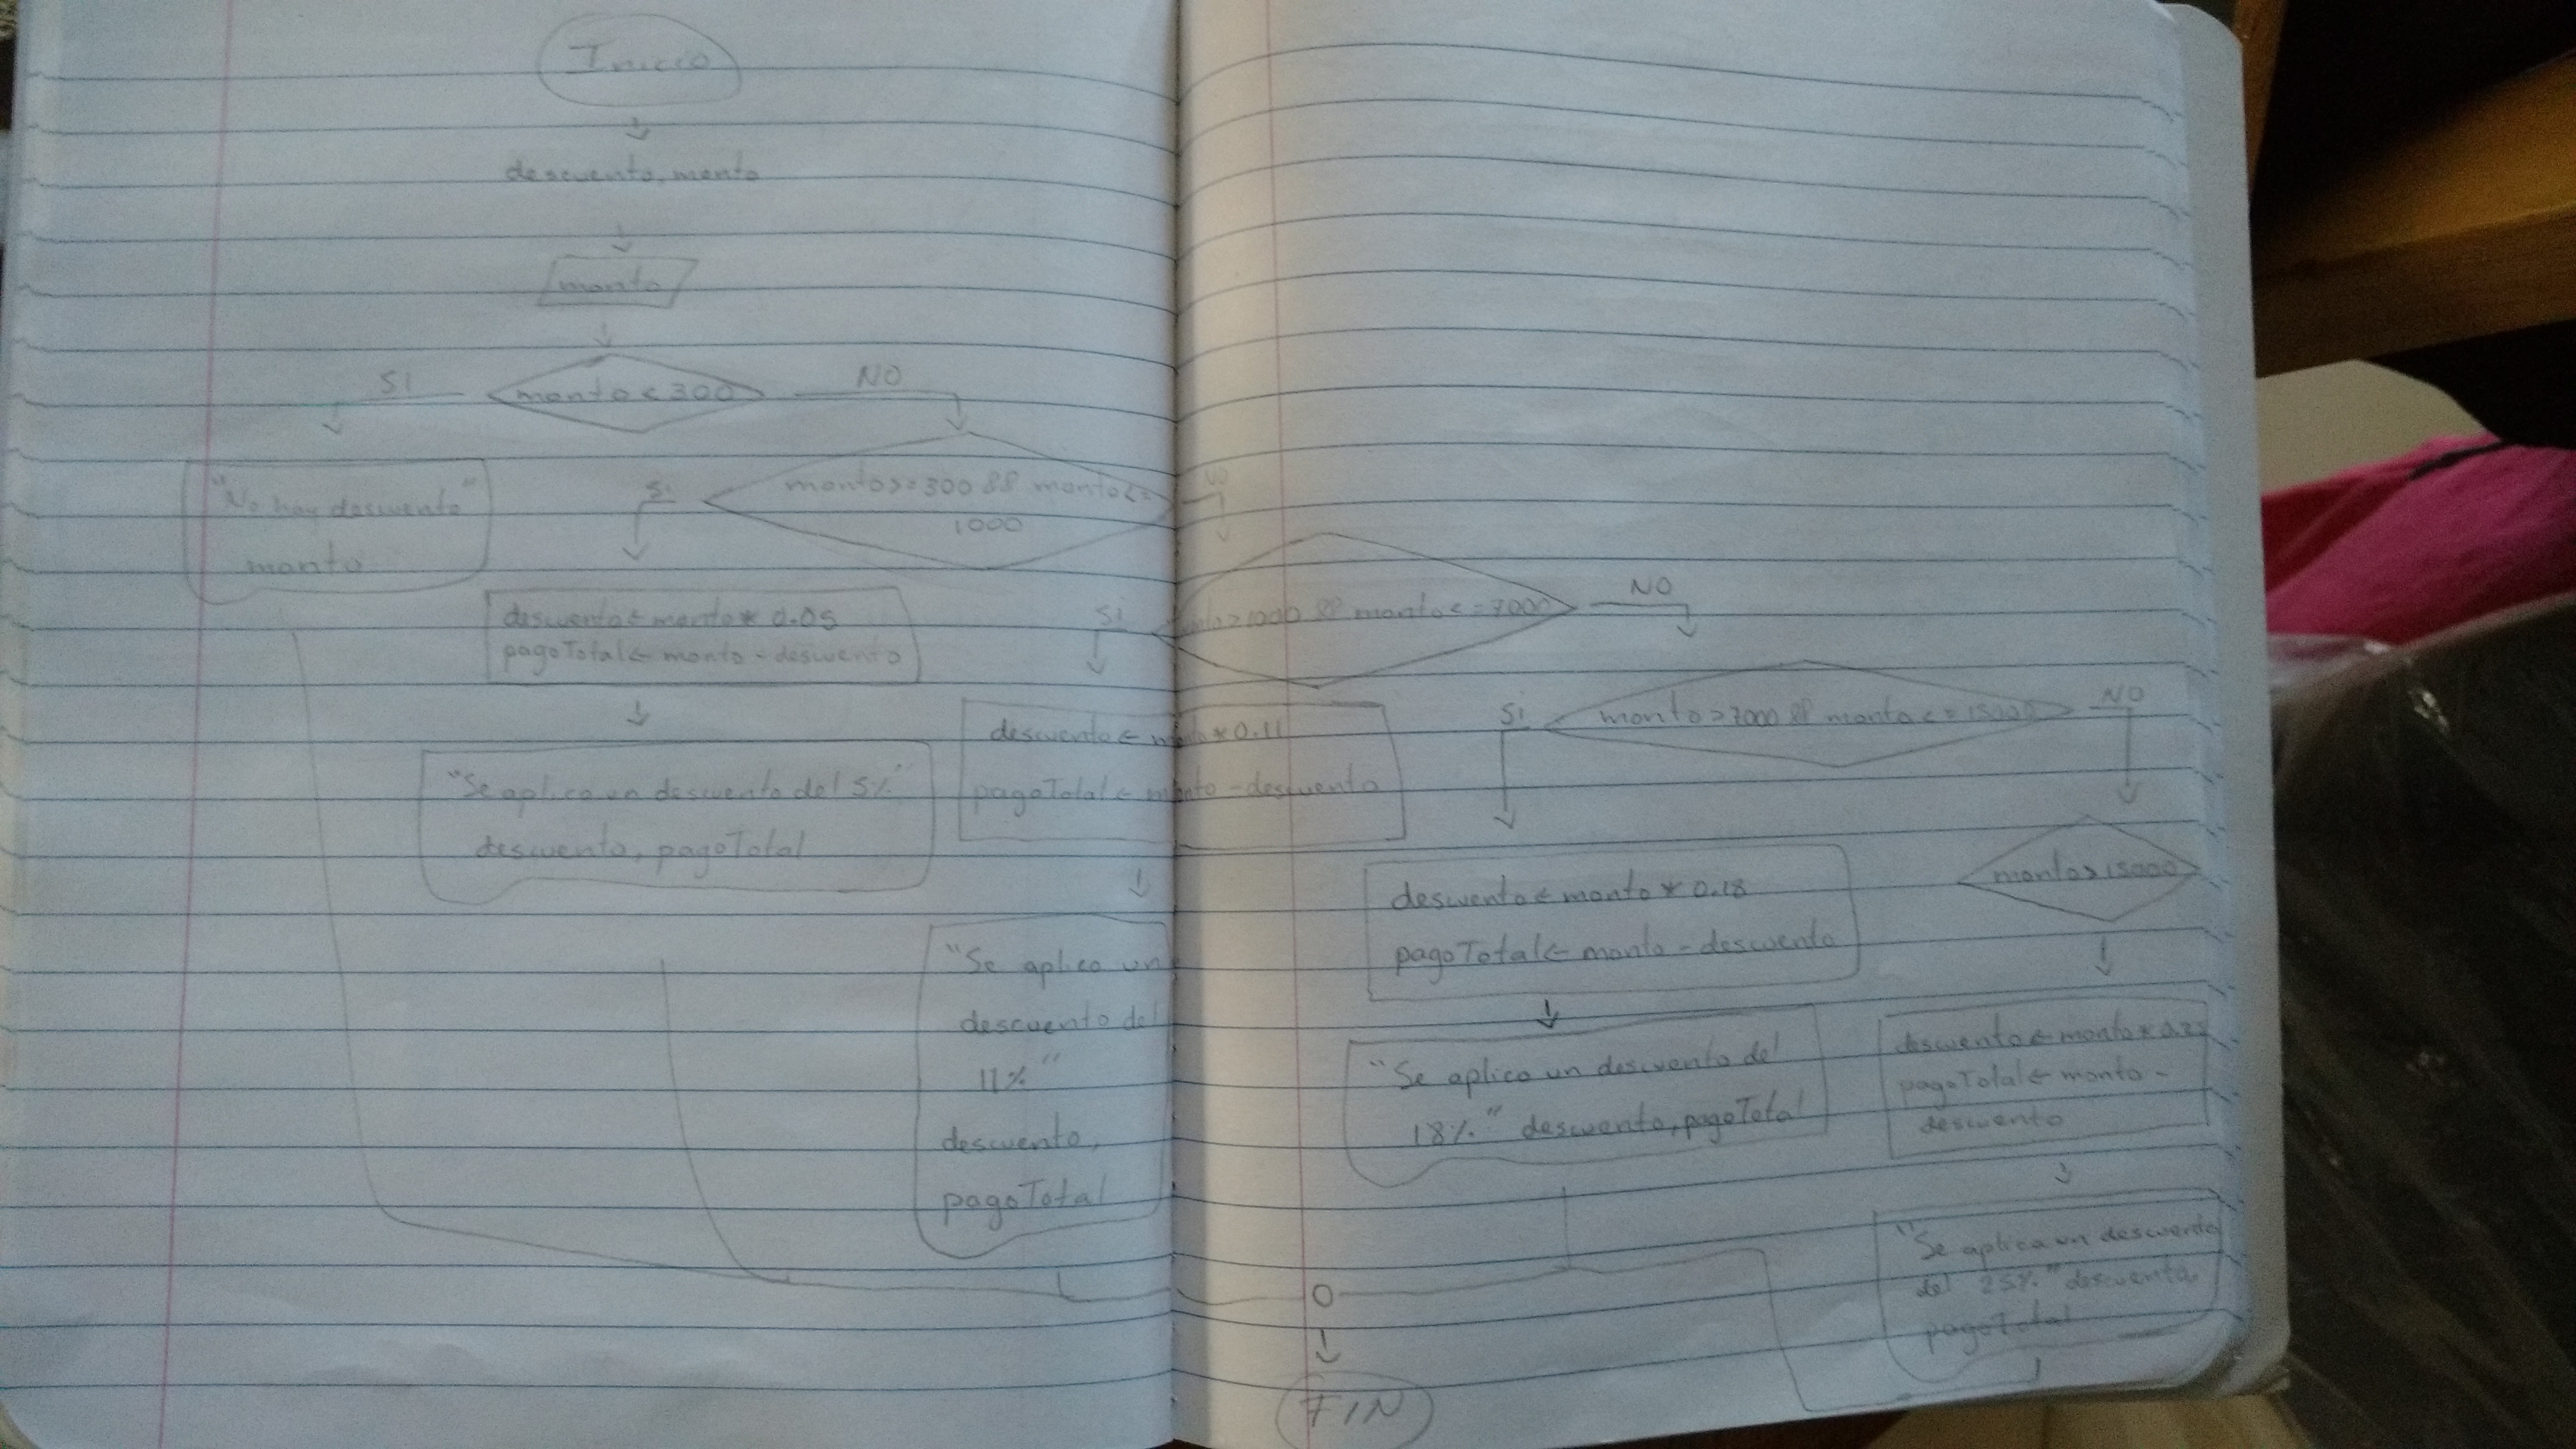 Inicio
descuento, monto
monto
SI
monto < 300
NO
"No hay descuento"
monto
Si
monto >= 300 && monto <=
1000
NO
descuento ← monto * 0.05
pagoTotal ← monto - descuento
"Se aplico un descuento del 5%"
descuento, pagoTotal
Si
>1000 && monto <= 7000
NO
descuento ← monto * 0.11
pagoTotal ← monto - descuento
"Se aplico un
descuento del
11%"
descuento,
pagoTotal
Si
monto > 7000 && monto <= 15000
NO
descuento ← monto * 0.18
pagoTotal ← monto - descuento
"Se aplico un descuento del
18%" descuento, pagoTotal
monto > 15000
descuento ← monto *
pagoTotal ← monto -
descuento
"Se aplica un descuento
del 25%" descuento,
pagoTotal
FIN